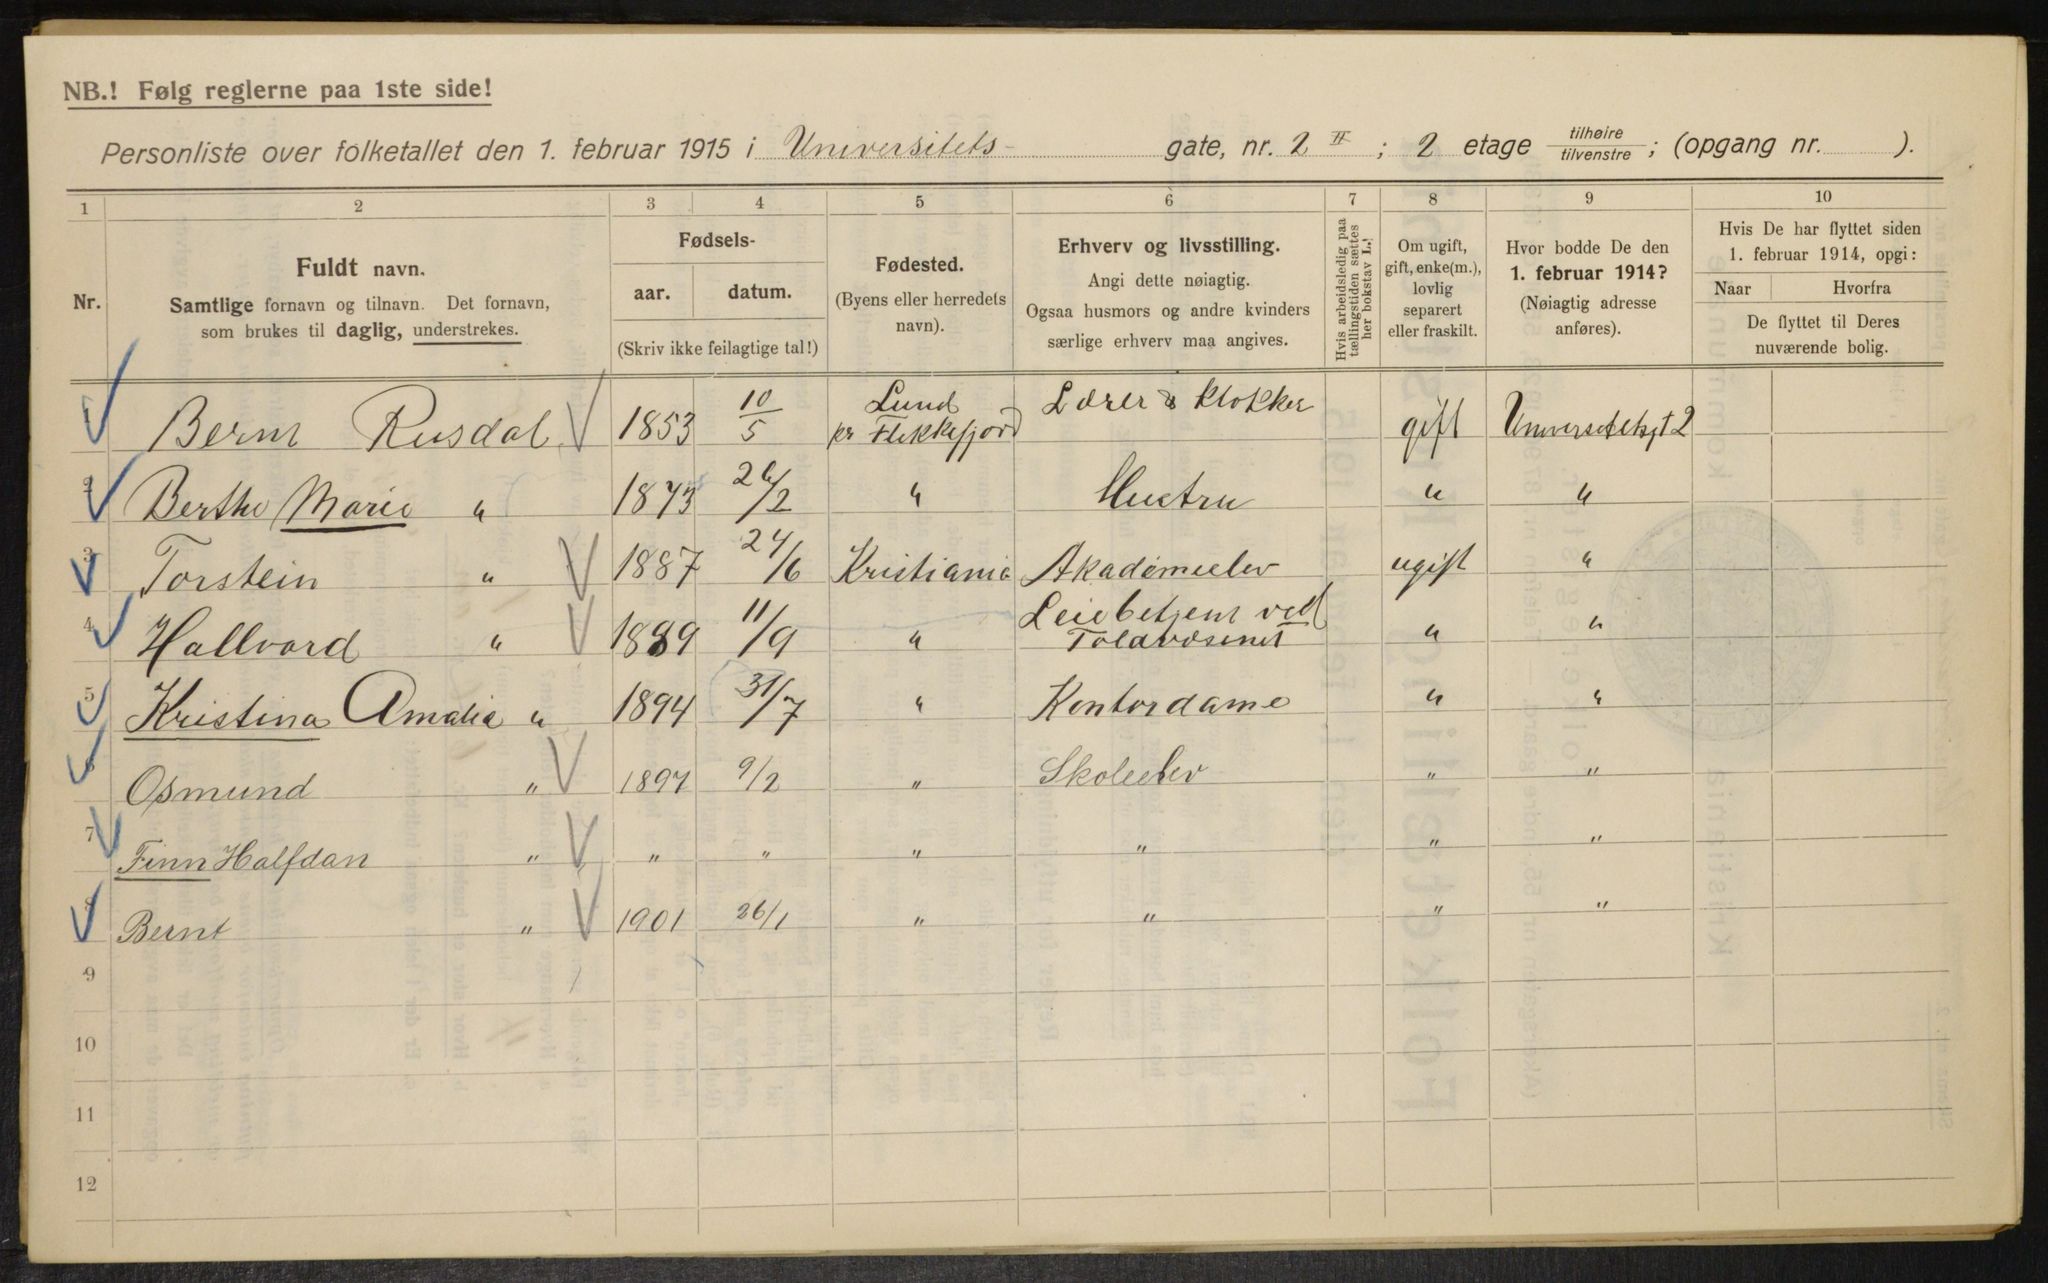 NB.! Følg reglerne paa 1ste side!
Personliste over folketallet den 1. februar 1915 i Universitets- gate, nr. 2 II ; 2 etage tilhøire/tilvenstre ; (opgang nr. ).
1 2 3 4 5 6 7 8 9 10
Nr.
Fuldt navn.
Samtlige fornavn og tilnavn. Det fornavn,
som brukes til daglig, understrekes.
Fødsels-
aar. datum.
(Skriv ikke feilagtige tal!)
Fødested.
(Byens eller herredets
navn).
Erhverv og livsstilling.
Angi dette nøiagtig.
Ogsaa husmors og andre kvinders
særlige erhverv maa angives.
Hvis arbeidsledig paa
tællingstiden sættes
her bokstav L.
Om ugift,
gift, enke(m.),
lovlig
separert
eller fraskilt.
Hvor bodde De den
1. februar 1914?
(Nøiagtig adresse
anføres).
Hvis De har flyttet siden
1. februar 1914, opgi:
Naar Hvorfra
De flyttet til Deres
nuværende bolig.
1 Bernt Rusdal 1853 10/5 Lund pr Flekkefjord Lærer & Klokker gift Universitetsgt 2
2 Berthe Marie " 1873 26/2 " Hustru " "
3 Torstein " 1887 24/6 Kristiania Akademielev ugift "
4 Hallvard " 1889 11/9 " Leiebetjent ved Toldvæsenet " "
5 Kristina Amalia " 1894 31/7 " Kontordame " "
6 Osmund " 1897 9/2 " Skoleelev " "
7 Finn Halfdan " " " " " " "
8 Bernt " 1901 26/1 " " " "
9
10
11
12